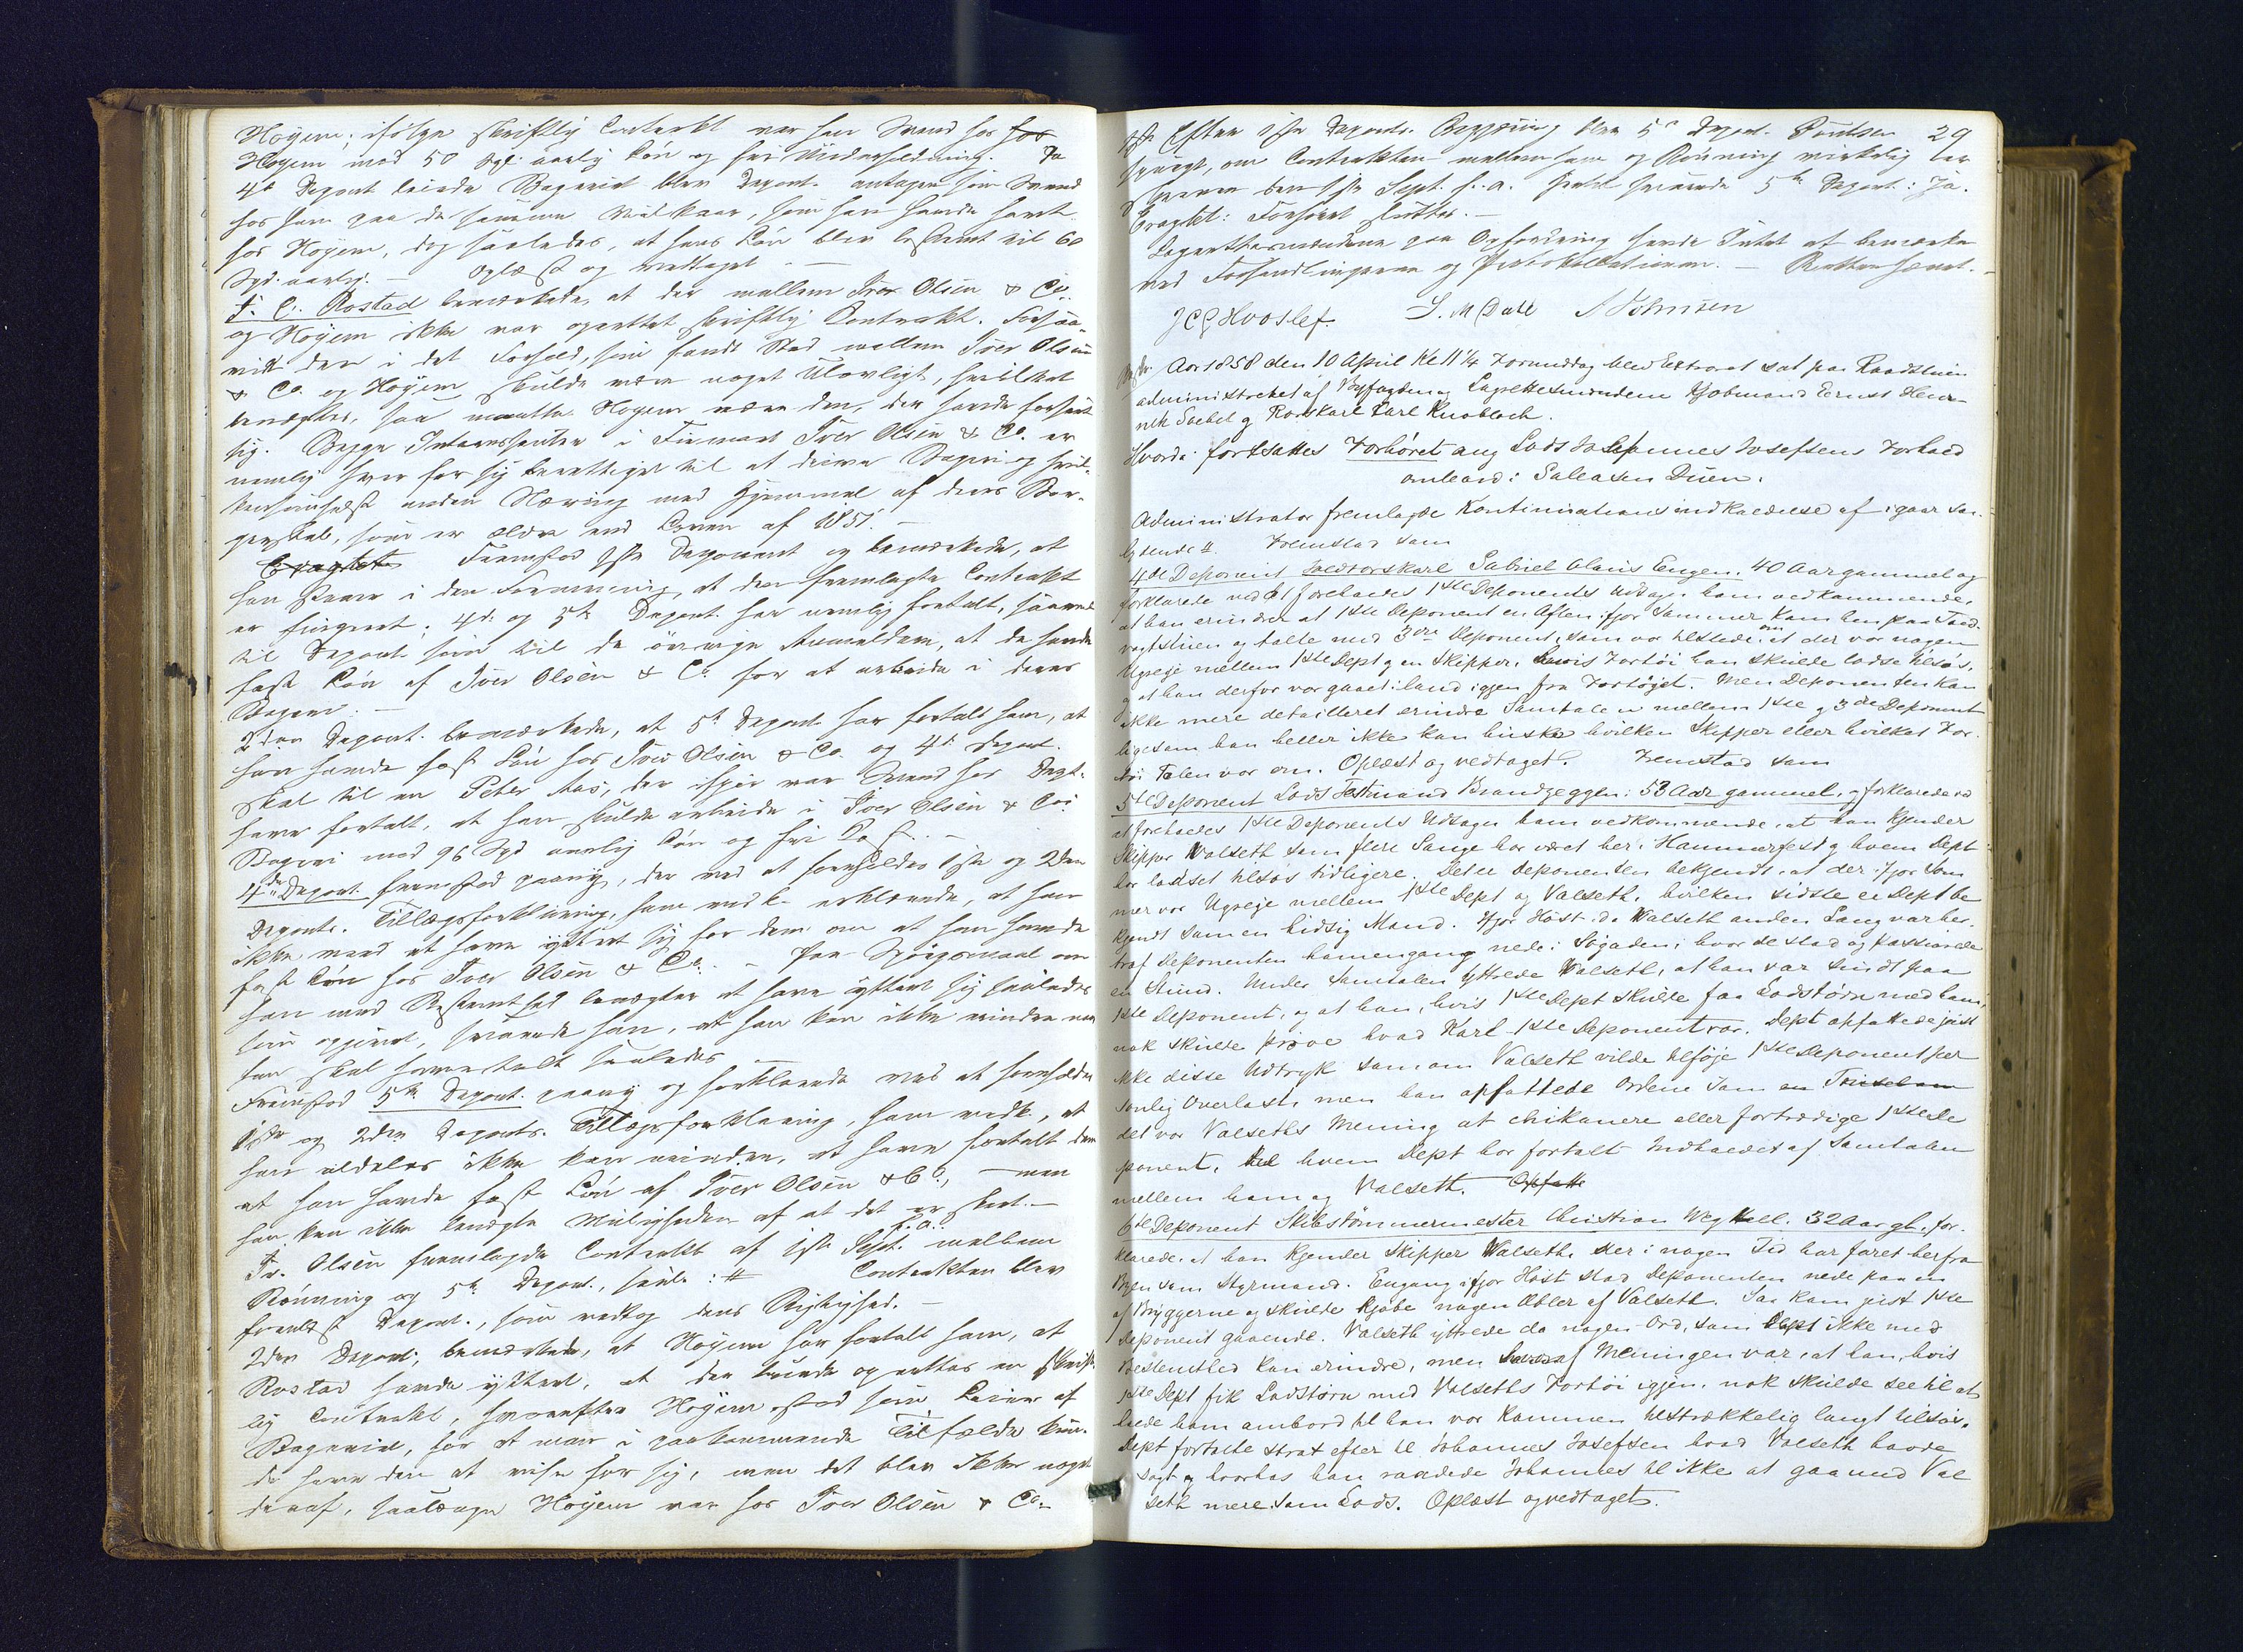 Høyem; ifølge skriftlig Contrakt var han Svend hos hos
Høyem mod 50 Spd. aarlig Løn og fri Underholdning. Da
4de Deponent leiede Bageriet blev Depont. antagen som Svend
hos ham paa de samme Vilkaar, som han havde havt
hos Høyem, dog saaledes, at hans Løn blev bestemt til 60
Spd. aarlig. — Oplæst og vedtaget. —
F. C. Rostad bemærkede, at der mellem Iver Olsen & Co.
og Høyem ikke var oprettet skriftlig Contrakt. Forsaa-
vidt der i det Forhold, som fandt Sted mellem Iver Olsen
& Co. og Høyem skulde være noget Ulovligt, hvilket
benægtes, saa maatte Høyem være den, der havde forseet
sig. Begge Interessenter i Firmaet Iver Olsen & Co. er
nemlig hver for sig berettiget til at drive Bageri og hvil-
kensomhelst anden Næring med Hjemmel af deres Bor-
gerskab, som er ældre end Loven af 1857. —
Eragtet Fremstod 1ste Deponent og bemærkede, at
han staar i den Formening, at den fremlagte Contrakt
er fingeret; 4de og 5te Deponent har nemlig fortalt, saavel
til Deponent som til de øvrige Anmeldere, at de havde
fast Løn af Iver Olsen & Co. for at arbeide i deres
Bageri. —
2den Deponent. bemærkede, at 5te Deponent har fortalt ham, at
han havde fast Løn hos Iver Olsen & Co. og 4de Deponent.
skal til en Peter Aas, der ifjor var Svend hos Dept.
have fortalt, at han skulde arbeide i Iver Olsen & Cos
Bageri mod 96 Spd aarlig Løn og fri Kost. —
4de Deponent fremstod paany, der ved at foreholdes 1ste og 2den
Deponts. Tillægsforklaring, ham vedk. erklærede, at han
ikke med at have yttret sig for dem om at han havde
fast Løn hos Iver Olsen & Co. — Paa Spørgsmaal om
han med Bestemthed benægter at have yttret sig saaledes
som opgivet, svarede han, at han kan ikke erindre om
han skal have talt saaledes —
Fremstod 5te Deponent. paany og forklarede ved at foreholdes
1ste og 2den Deponts. Tillægsforklaring, ham vedk., at
han aldeles ikke kan erindre, at have fortalt dem
at han havde fast Løn af Iver Olsen & Co., — men
han kan ikke benægte Muligheden af at det er skeet. —
Iv. Olsen fremlagde Contrakt af 1ste Sept. f.a. mellem
Rønning og 5te Deponent., saal.: # Contrakten blev
forelæst Deponent., som vedtog dens Rigtighed. —
2den Deponent; bemærkede, at Høyem har fortalt ham, at
Rostad havde yttret, at der burde oprettes en skrift-
lig Contrakt, hvorefter Høyem stod som Leier af
Bageriet, for at man i paakommende Tilfælde kun-
de have den at vise for sig, men det blev ikke noget
deraf, saalænge Høyem var hos Iver Olsen & Co.
29
Efter 1ste Deponts. Begjæring blev 5te Deponent.
spurgt, om Contrakten mellem ham og Rønning virkelig er
skreven den 1ste Sept. f. a. hvortil svarede 5te Deponent: Ja.
Eragtet: Forhøret sluttes. —
Lagrettesmændene paa Opfordring havde Intet at bemærke
ved Forhandlingerne og Protokollationen. — Retten hævet.
J C G Hvoslef. S. M Dahl A Johnsen
Aar 1858 den 10 April Kl 11 ¼ Formiddag blev Extraret sat paa Raadstuen
administreret af Byfogden og Lagrettesmændene Kjøbmand Ernst Hen-
rik Soebel og Rorskarl Carl Knobloch.
Hvorda fortsattes Forhøret ang Lods Johannes Josefsens Forhold
ombord i Galeasen Duen.
Administrator fremlagde Kontinuations indkaldelse af igaar saa-
lydende #. Fremstod som
4de Deponent Toldrorskarl Gabriel Olaus Engen, 40 Aar gammel og
forklarede ved at foreholdes 1ste Deponents Udsagn ham vedkommende,
at han erindrer at 1ste Deponent en Aften ifjor Sommer kom hen paa Told-
vagtstuen og talte med 3die Deponent, som var tilstede, om at der var nogen
Ugreje mellem 1ste Dept og en Skipper, hvis Fartøi han skulde lodse tilsøs,
og at han derfor var gaaet iland igjen fra Fartøjet. Men Deponenten kan
ikke mere detailleret erindre Samtalen mellem 1ste og 3die Deponent
ligesom han heller ikke kan huske hvilken Skipper eller hvilket Far-
tøi Talen var om. Oplæst og vedtaget. Fremstod som
5te Deponent Lods Ferdinand Brandzeggen: 53 Aar gammel, og forklarede ved
at foreholdes 1ste Deponents Udsagn ham vedkommende, at han kjender
Skipper Valseth som flere Gange har været her i Hammerfest og hvem Dept
har lodset tilsøs tidligere. Det er Deponenten bekjendt, at der ifjor Som
mer var Ugreje mellem 1ste Dept og Valseth, hvilken sidste er Dept be
kjendt som en hidsig Mand. Ifjor Høst, da Valseth anden Gang var her,
traf Deponenten ham engang nede i Søgaden, hvor de stod og passiarede
en Stund. Under Samtalen yttrede Valseth, at han var sindt paa
1ste Deponent, og at han, hvis 1ste Dept skulde faa Lodstørn med ham,
nok skulde prøve hvad Karl 1ste Deponent var. Dept opfattede just
ikke disse Udtryk som om Valseth vilde tilføje 1ste Deponent per
sonlig Overlast, men han opfattede Ordene som en Trudsel om
det var Valseths Mening at chikanere eller fortrædige 1ste De
ponent, til hvem Dept har fortalt Indholdet af Samtalen
mellem ham og Valseth. Opfatte
6te Deponent Skibstømmermester Christian Wegkell. 32 Aar gl., for-
klarede, at han kjender Skipper Valseth, der i nogen Tid har faret herfra
Byen som Styrmand. Engang ifjor Høst stod Deponenten nede paa en
af Bryggerne og skulde kjøbe nogen Æbler af Valseth. Saa kom just 1ste
Deponent gaaende. Valseth yttrede da nogen Ord, som Dept ikke med
Bestemthed kan erindre, men hvoraf Meningen var, at han, hvis
1ste Dept fik Lodstørn med Valseths Fartøi igjen, nok skulde see til at
holde ham ombord til han var kommen tilstrækkelig langt tilsøs.
Dept fortalte strax efter til Johannes Josefsen hvad Valseth havde
sagt, og hvorhos han raadede Johannes til ikke at gaa med Val
seth mere som Lods. Oplæst og vedtaget.